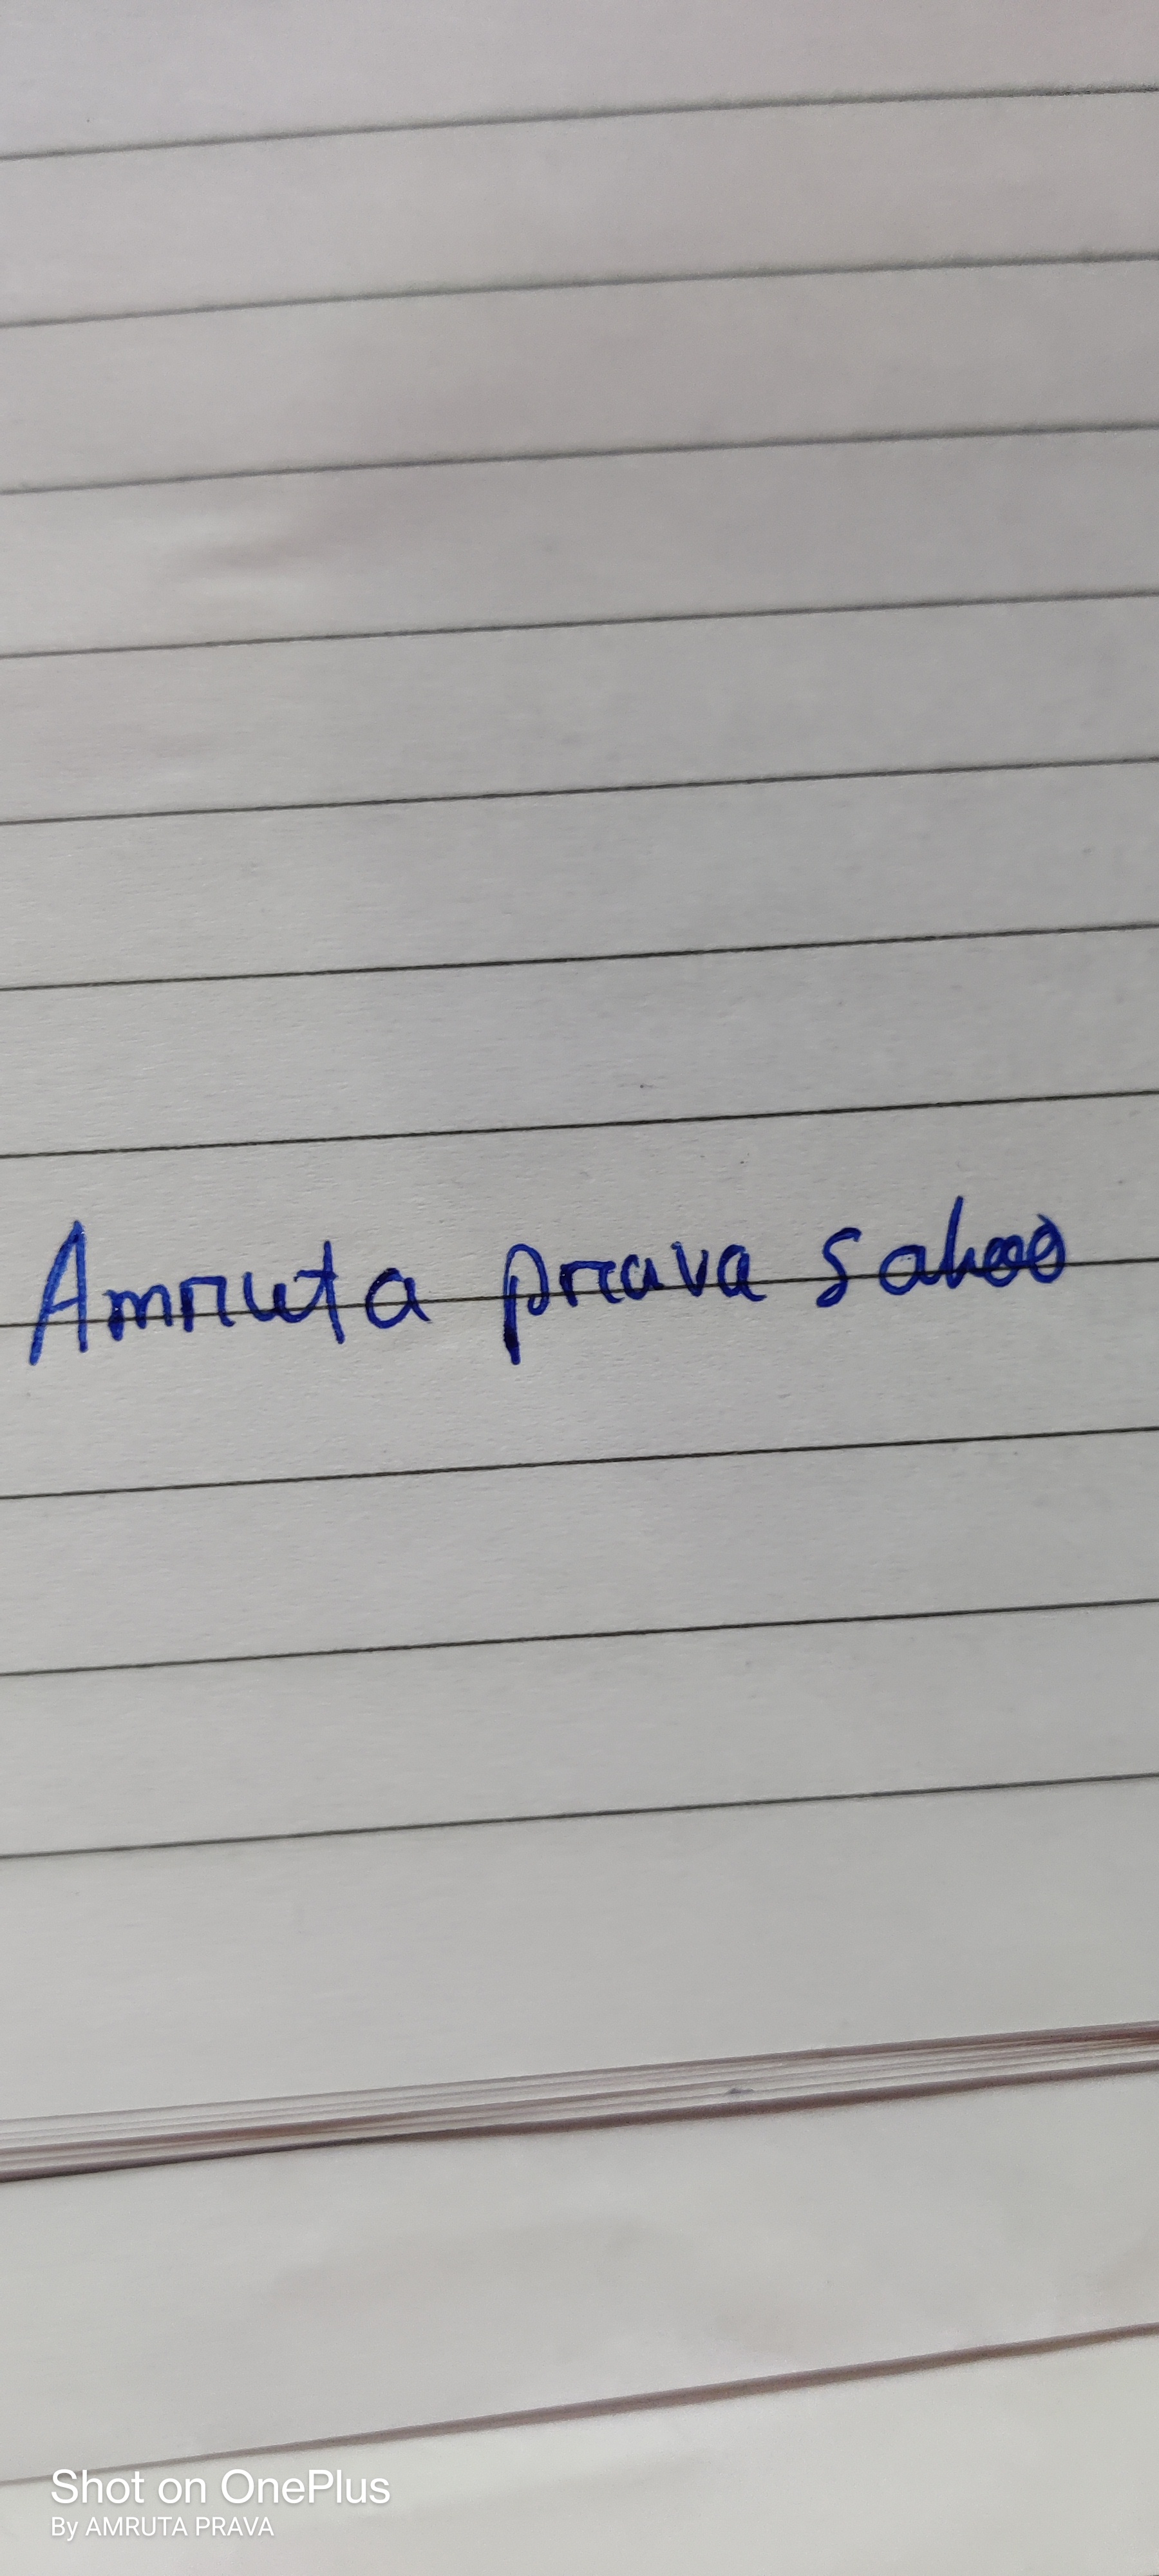 Amruta prava sahoo
Shot on OnePlus
By AMRUTA PRAVA